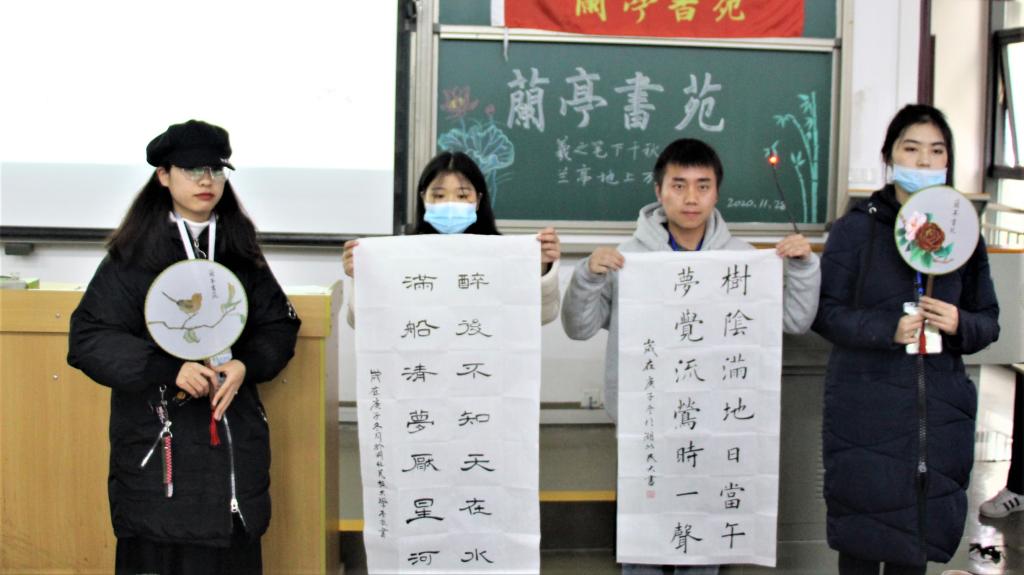 蘭亭書苑
蘭亭書苑
羲之笔下千秋
兰亭地上
2020.11.28
醉後不知天在水
滿船清夢厭星河
樹陰滿地日當午
夢覺流鶯時一聲
歲在庚子冬於湖北民大書